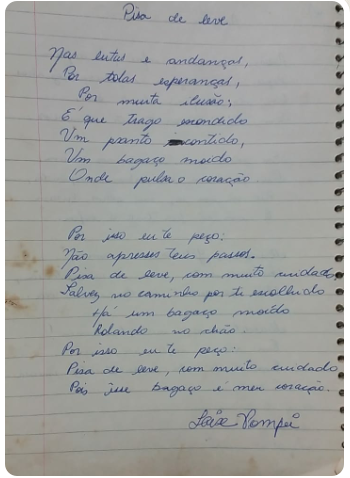 Pisa de leve
Nas lutas e andanças,
Por tolas esperanças,
Por muita ilusão;
É que trago escondido
Um pranto contido,
Um bagaço moido
Onde pulsa o coração
Por isso eu te peço:
Não apresses teus passos.
Pisa de leve, com muito cuidado
Talvez no caminho por ti escolhido
Há um bagaço moído
Rolando no chão.
Por isso eu te peço:
Pisa de leve, com muito cuidado
Pois esse bagaço é meu coração.
Pompei